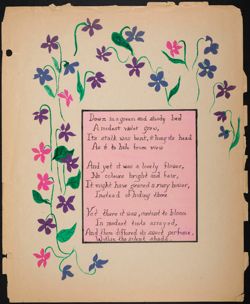 Down in a green and shady bed
A modest violet grew,
Its stalk was bent, it hung its head
As if to hide from view
And yet it was a lovely flower,
No colours bright and fair,
It might have graced a rosy bower,
Instead of hiding there
Yet there it was, content to bloom
In modest tints arrayed,
And there diffused its sweet perfume,
Within the silent shade